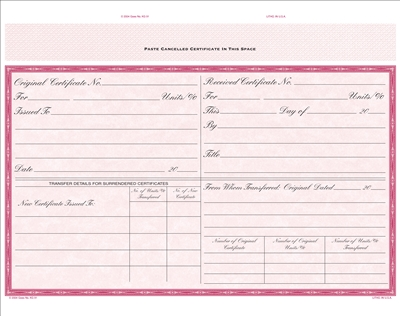 PASTE CANCELLED CERTIFICATE IN THIS SPACE
Original Certificate No.
For Units/%
Issued To
Date 20
Received Certificate No.
For Units/%
This Day of 20
By
Title
TRANSFER DETAILS FOR SURRENDERED CERTIFICATES
New Certificate Issued To:
No. of Units/% Transferred
No. of New Certificate
From Whom Transferred: Original Dated 20
Number of Original Certificate
Number of Original Units/%
Number of Units/% Transferred
LITHO. IN U.S.A.
LITHO. IN U.S.A.